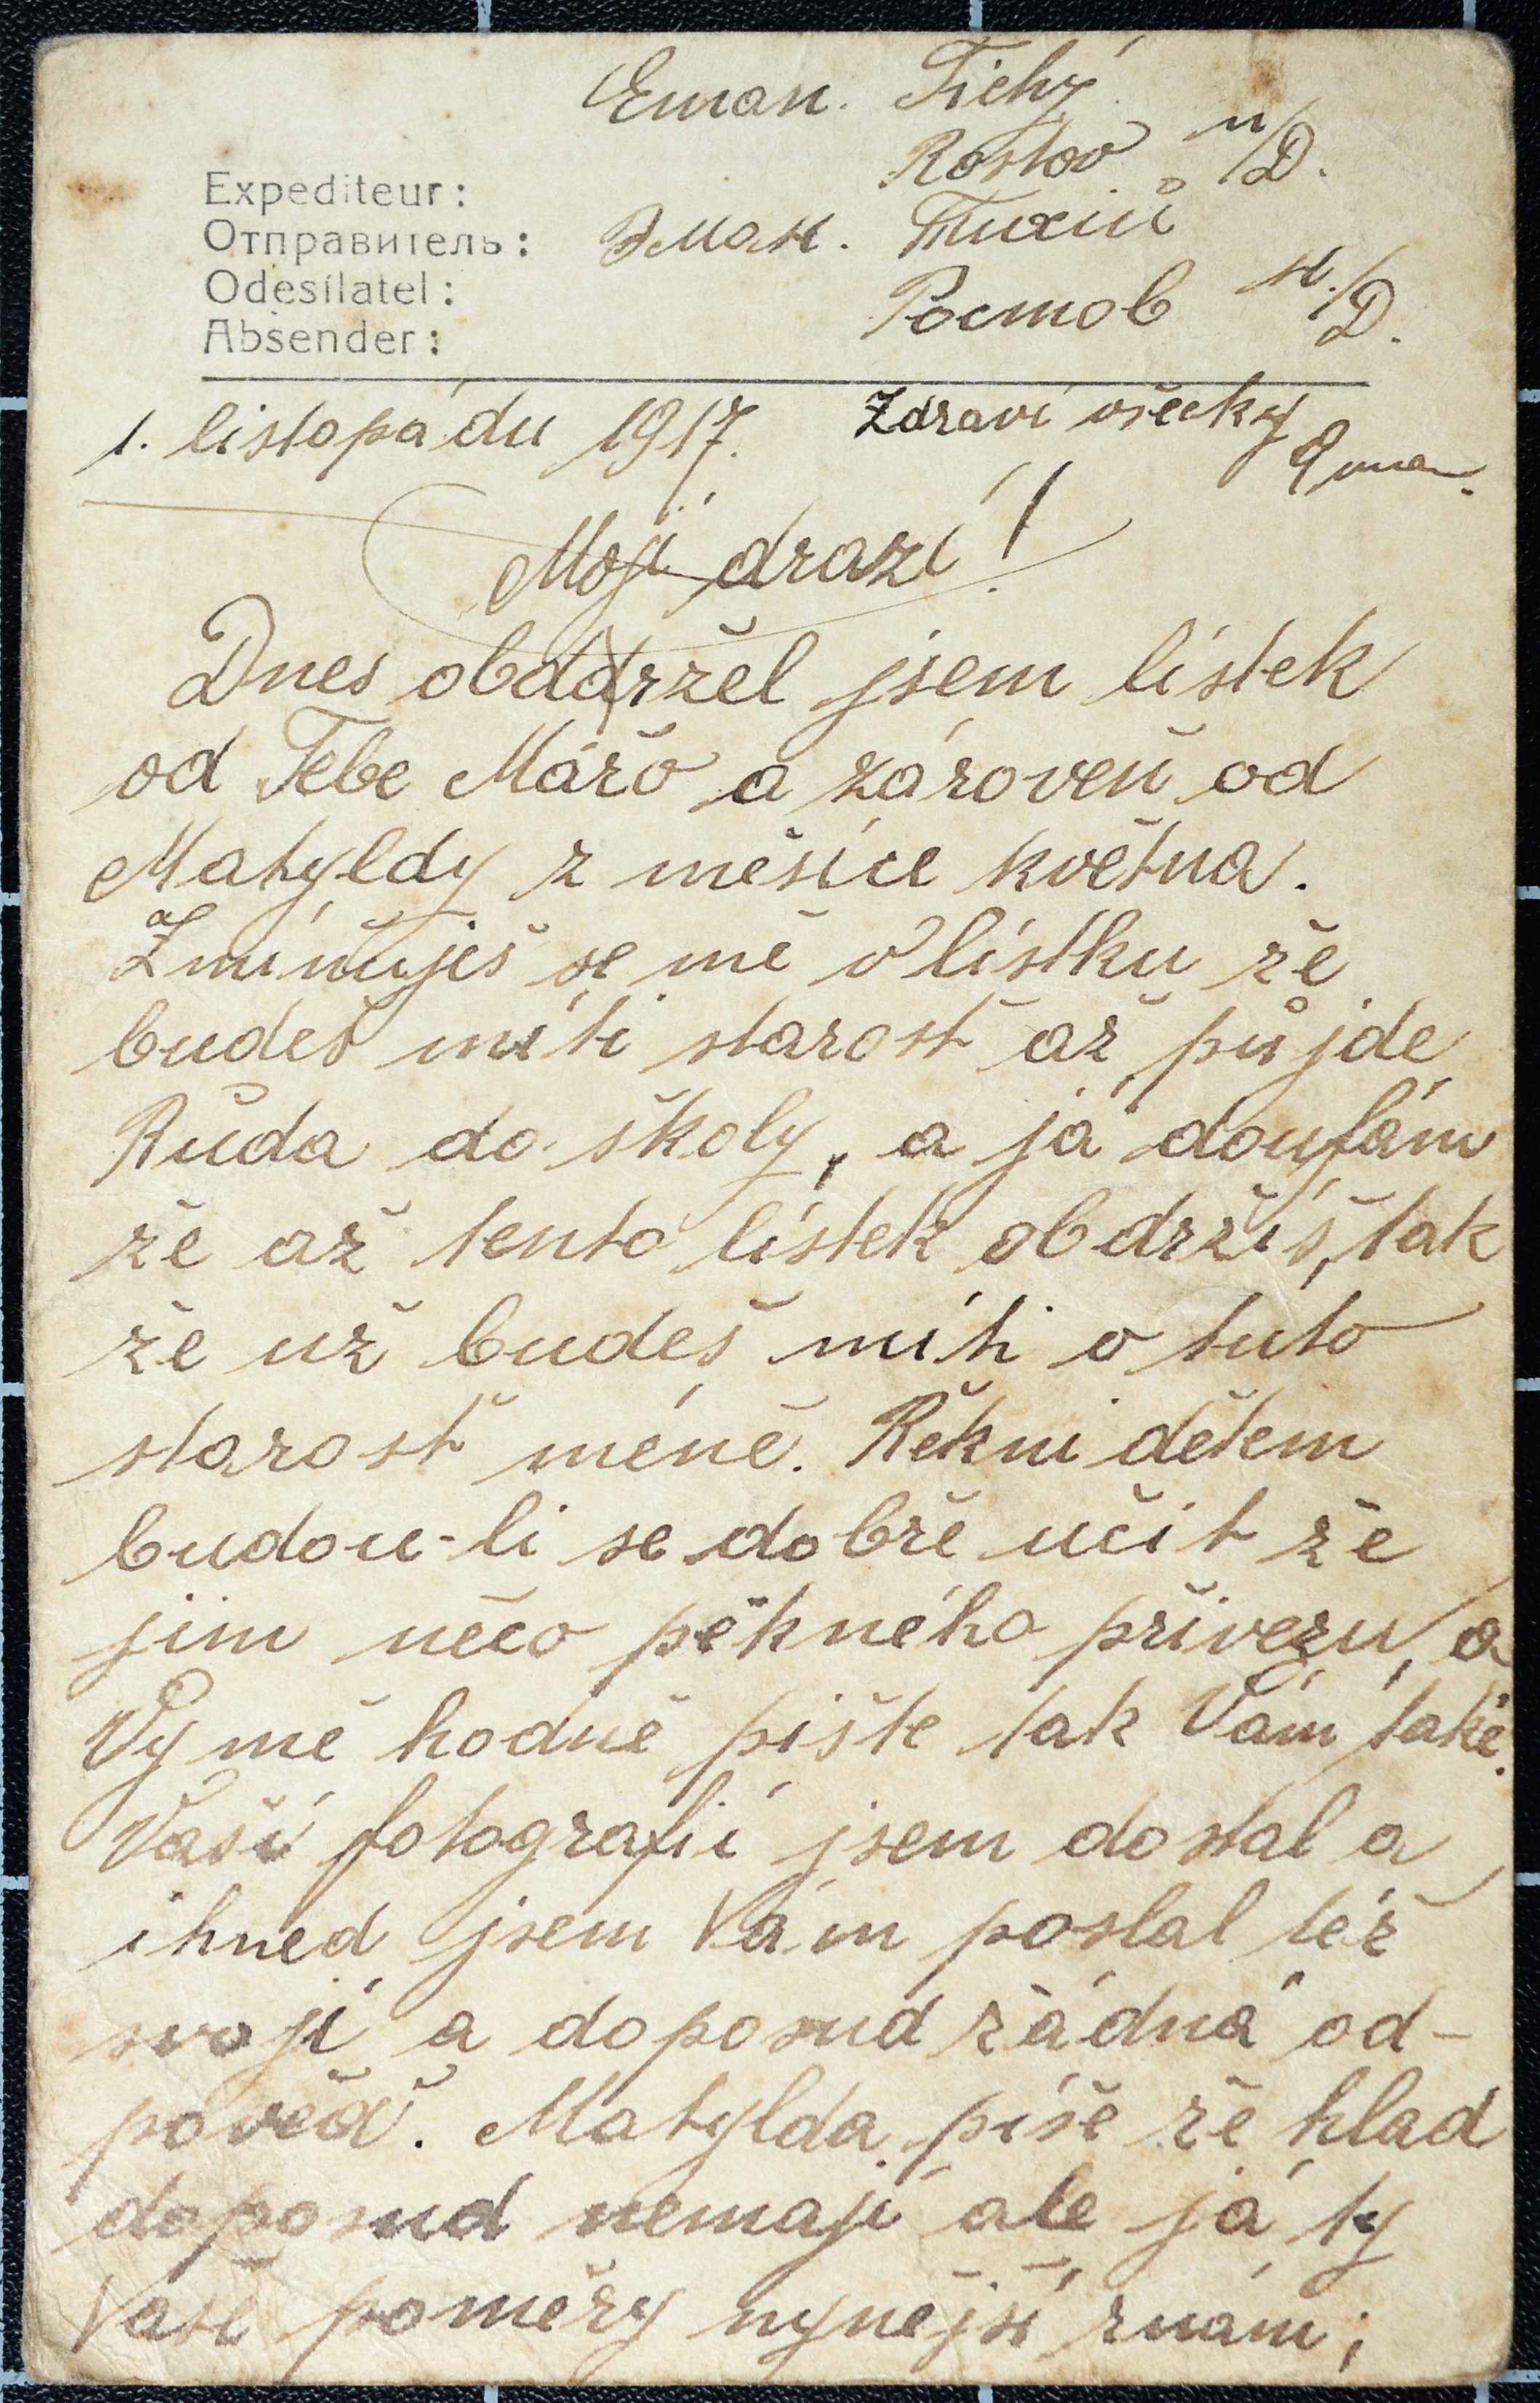 Eman. Tichý
Rostov n/D.
Expediteur:
Отправитель: Эман. Тихий
Odesílatel: Ростов н./Д.
Absender:
1. listopadu 1917. Zdraví všecky Eman.
Moji drazí!
Dnes obddržel jsem lístek
od Tebe Mářo a zároveň od
Matyldy z měsíce května.
Zmiňuješ se mě v lístku že
budeš míti starost až půjde
Růda do školy, a já doufám
že až tento lístek obdržíš, tak
že už budeš míti o tuto
starost méně. Řekni dětem
budou-li se dobře učit že
jim něco pěkného přivezu, a
Vy mě hodně pište tak Vám také.
Vaší fotografii jsem dostal a
ihned jsem Vám poslal též
svojí a doposud žádná od-
pověď. Matylda píše že hlad
doposud nemají ale já ty
Vaše poměry nynější znám;